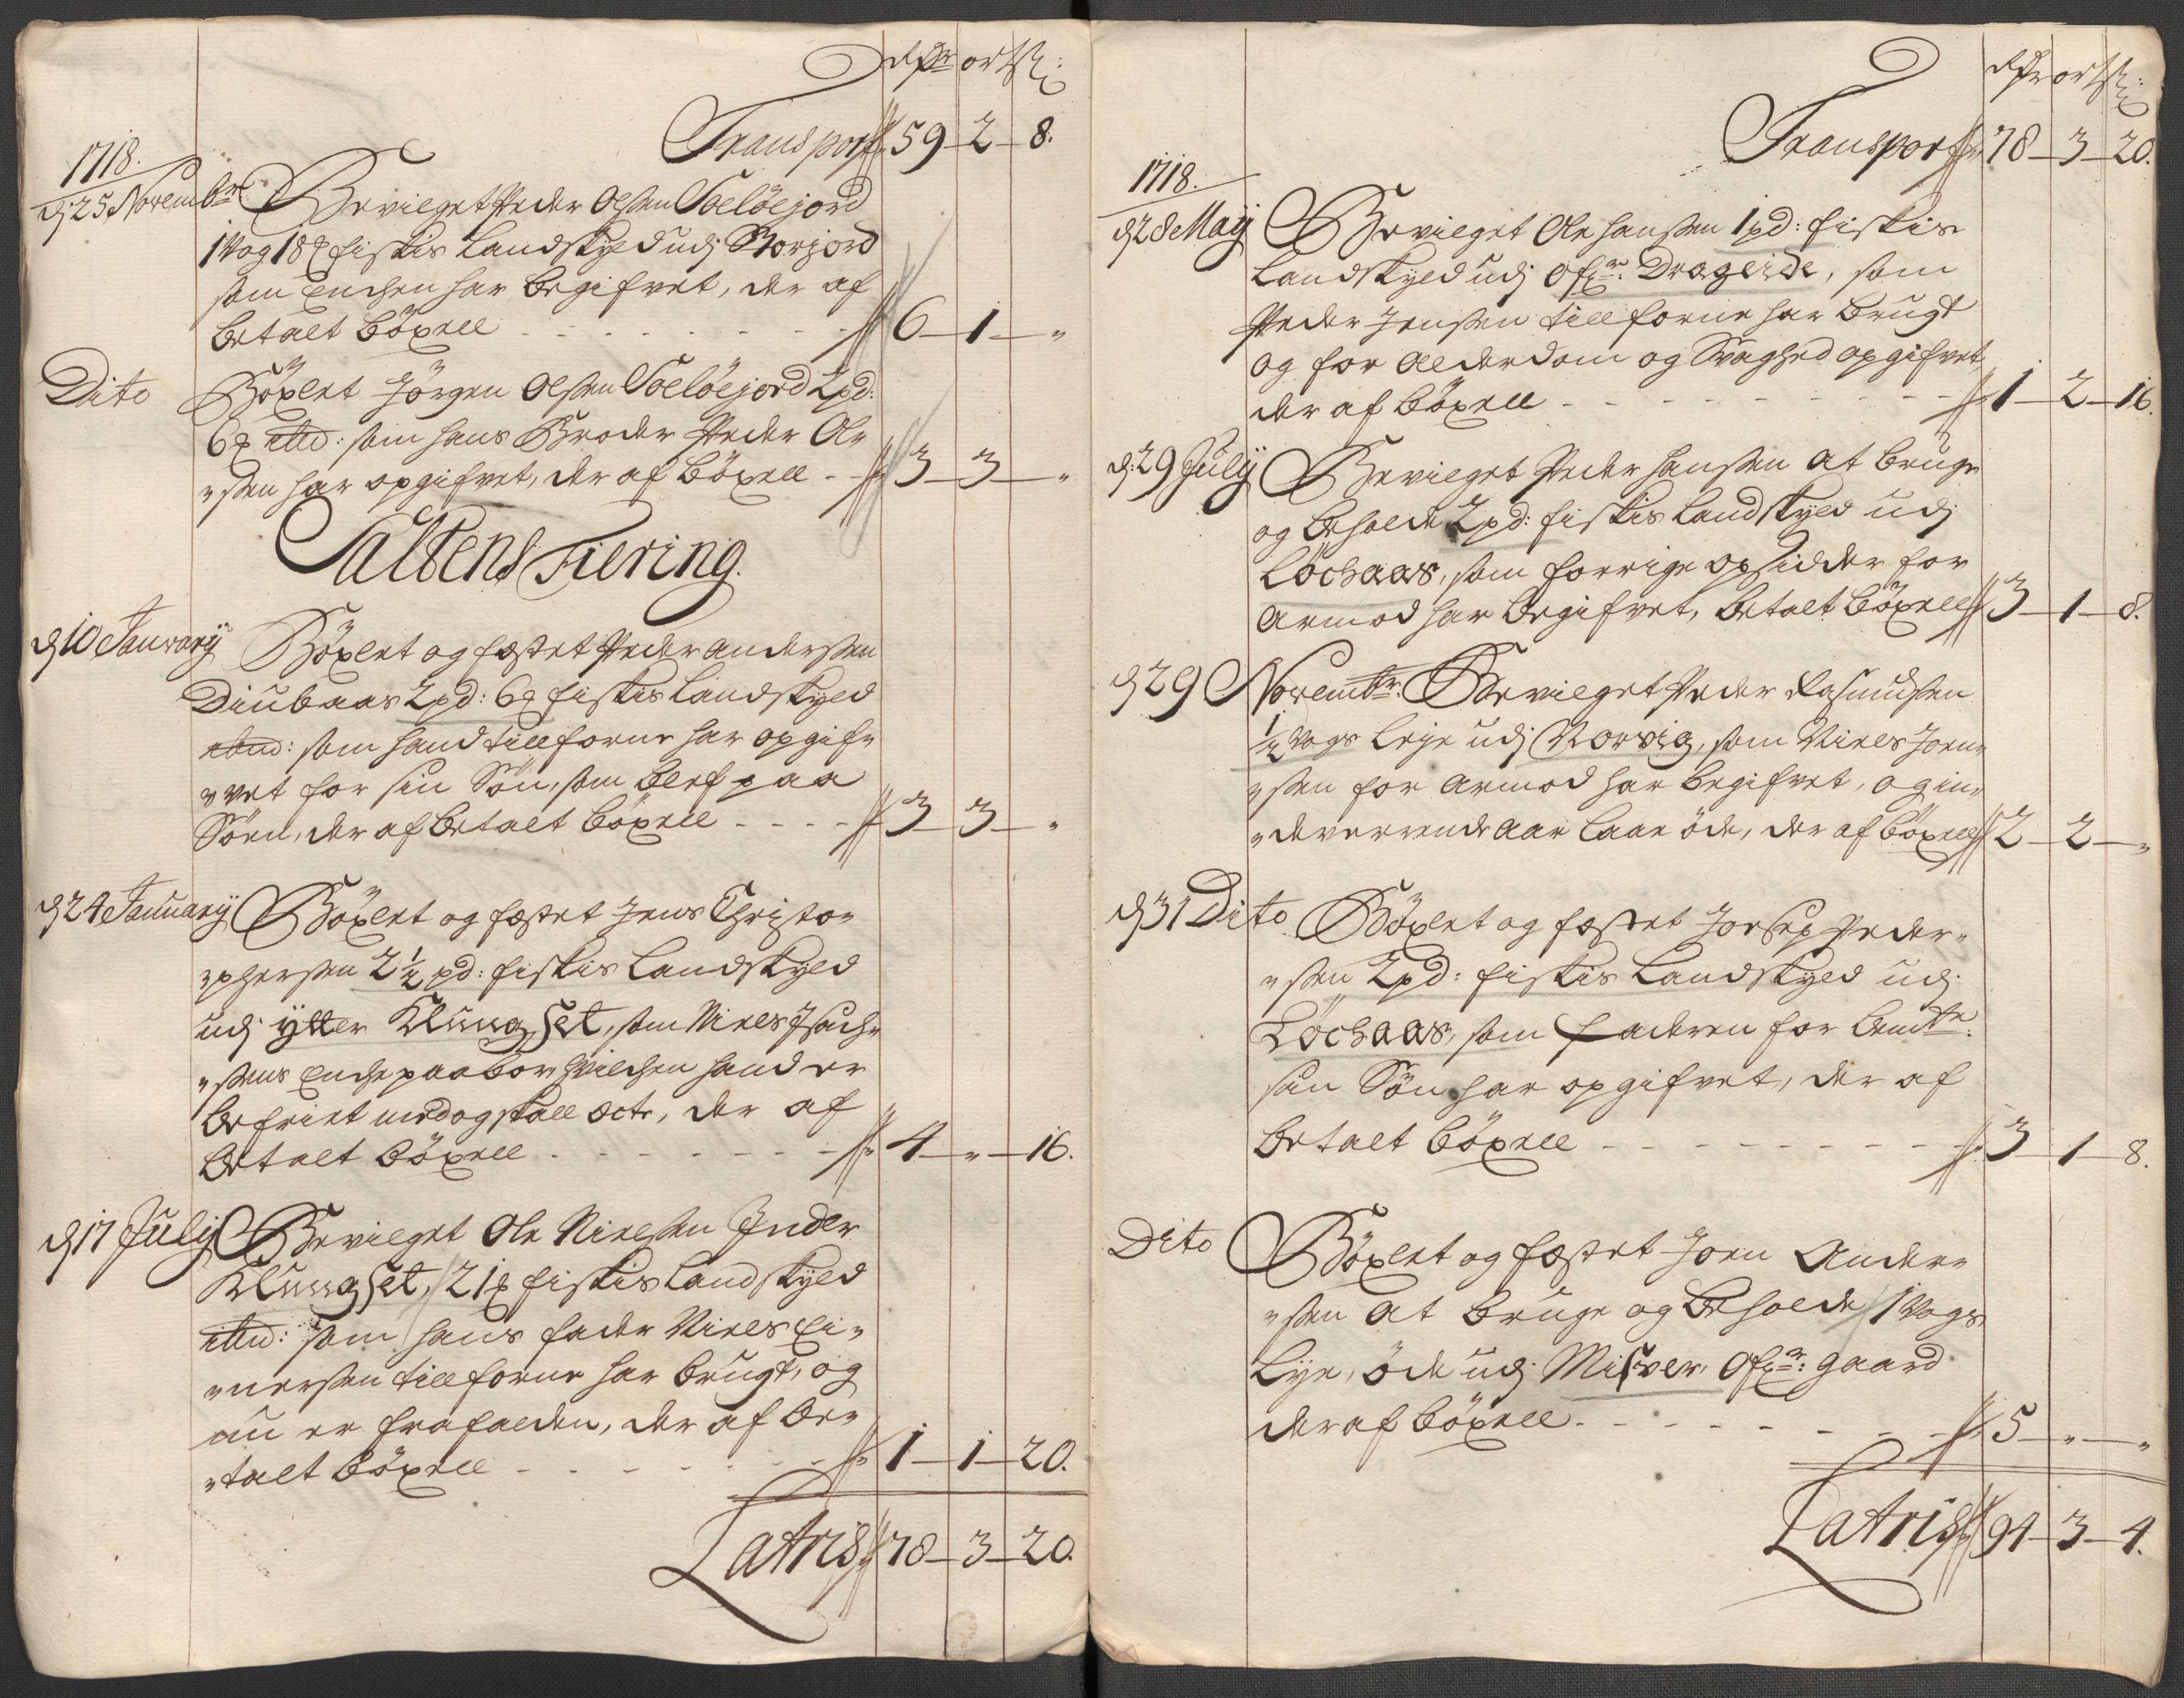 dlr ort ß:
Transport 59 - 2 - 8.
1718.
d 25 Novembr Bevilget Peder Olsen Soeløejord
1 Vog 18 ℔ fiskis Landskyld udj Storjord
som Enchen har begifvet, der af
betalt böxell - - - 6 - 1 - "
Dito Böxlet Jörgen Olsen Soelöejord 2 pd:
6 ℔ ibid: som hans Broder Peder Ol=
=sen har opgifvet, der af böxell - 3 - 3 - "
Saltens Fiering.
d 10 January Böxlet og fæstet Peder Andersen
Diubaas 2 pd: 6 ℔ fiskis Landskyld
ibid: som hand tillforne har opgif=
=vet for sin Sön, som blef paa
Söen, der af betalt böxell - - - - 3 - 3 - "
d 24 January Böxlet og fæstet Jens Christo=
=phersen 2½ pd: fiskis Landskyld
udj ytter Klungset, som Niels Isach=
=sens Enche paaboer hvilchen hand er
befriet med og skall Octr, der af
betalt böxell - - - 4 - " - 16.
d 17 July Bevilget Ole Nielsen Inder
Klungset, 21 ℔ fiskis Landskyld
ibid: som hans fader Niels Ei=
=nersen tillforne har brugt, og
nu er frafalden, der af be=
=talt böxell - - - 1 - 1 - 20.
Latris 78 - 3 - 20.
dlr ort ß:
Transport 78 - 3 - 20.
1718.
d 28 May Bevilget Ole Hansen 1 pd: fiskis
Landskyld udj Ofr: Drageide, som
Peder Jensen tillforne har brugt
og for Alderdom og Svaghed opgifvet
der af böxell - - - 1 - 2 - 16.
d: 29 July Bevilget Peder Hansen at bruge
og beholde 2 pd: fiskis Landskyld udj
Löchaas, som forrige opsidder for
Armod har begifvet, betalt böxell 3 - 1 - 8.
d 29 Novembr. Bevilget Peder Rasmusen
½ Vogs leje udj Norvig, som Niels Joen=
=sen for Armod har begifvet, og in=
=deverende Aar laae öde, der af böxell 2 - 2 - "
d 31 Dito Böxlet og fæstet Joesep Peder=
=sen 2 pd: fiskis Landskyld udj
Löchaas, som faderen for bemte:
sin Sön har opgifvet, der af
betalt böxell - - - 3 - 1 - 8.
Dito Böxlet og fæstet Joen Ander=
=sen at bruge og beholde 1 Vogs
Leje, öde udj Misver, Ofr: gaard
der af böxell - - - 5 - " - "
Latris 94 - 3 - 4.